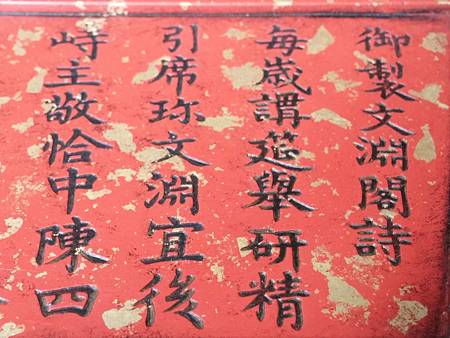 御製文淵閣詩
每歲謂筵舉研精
引席珎文淵宜後
峙主敬恰中陳四